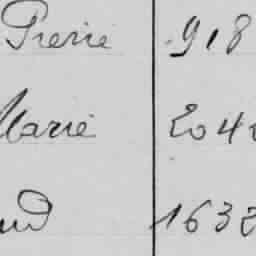 Pierre 918
Marie 204
1632